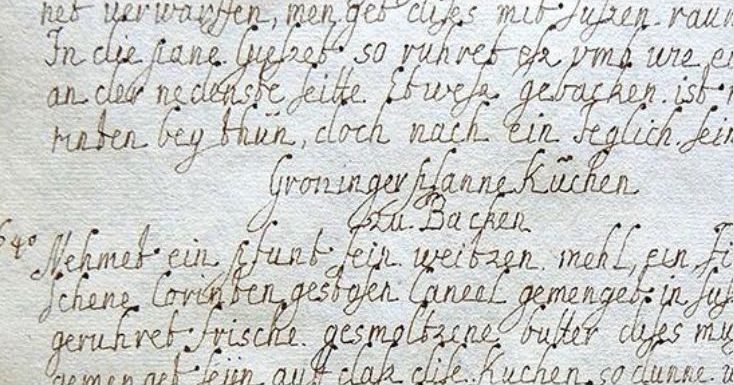 het verwarffen, men geb dises mit sussen raum
In die pane giesset so ruhret esz vmb wie ei
an der nedenste seitte Etwesz gebacken ist
rinten bey thün, doch nach ein Jeglich sein
Groninger pfanne Küchen
zu Backen
64° Nehmet ein pfunt fein weitzen mehl, ein
schene Corinten gestosen Caneel gemenget in sus
geruhret frische gesmoltzene butter dises mu
gemenget seÿn auff dasz dise Kuchen so dunne